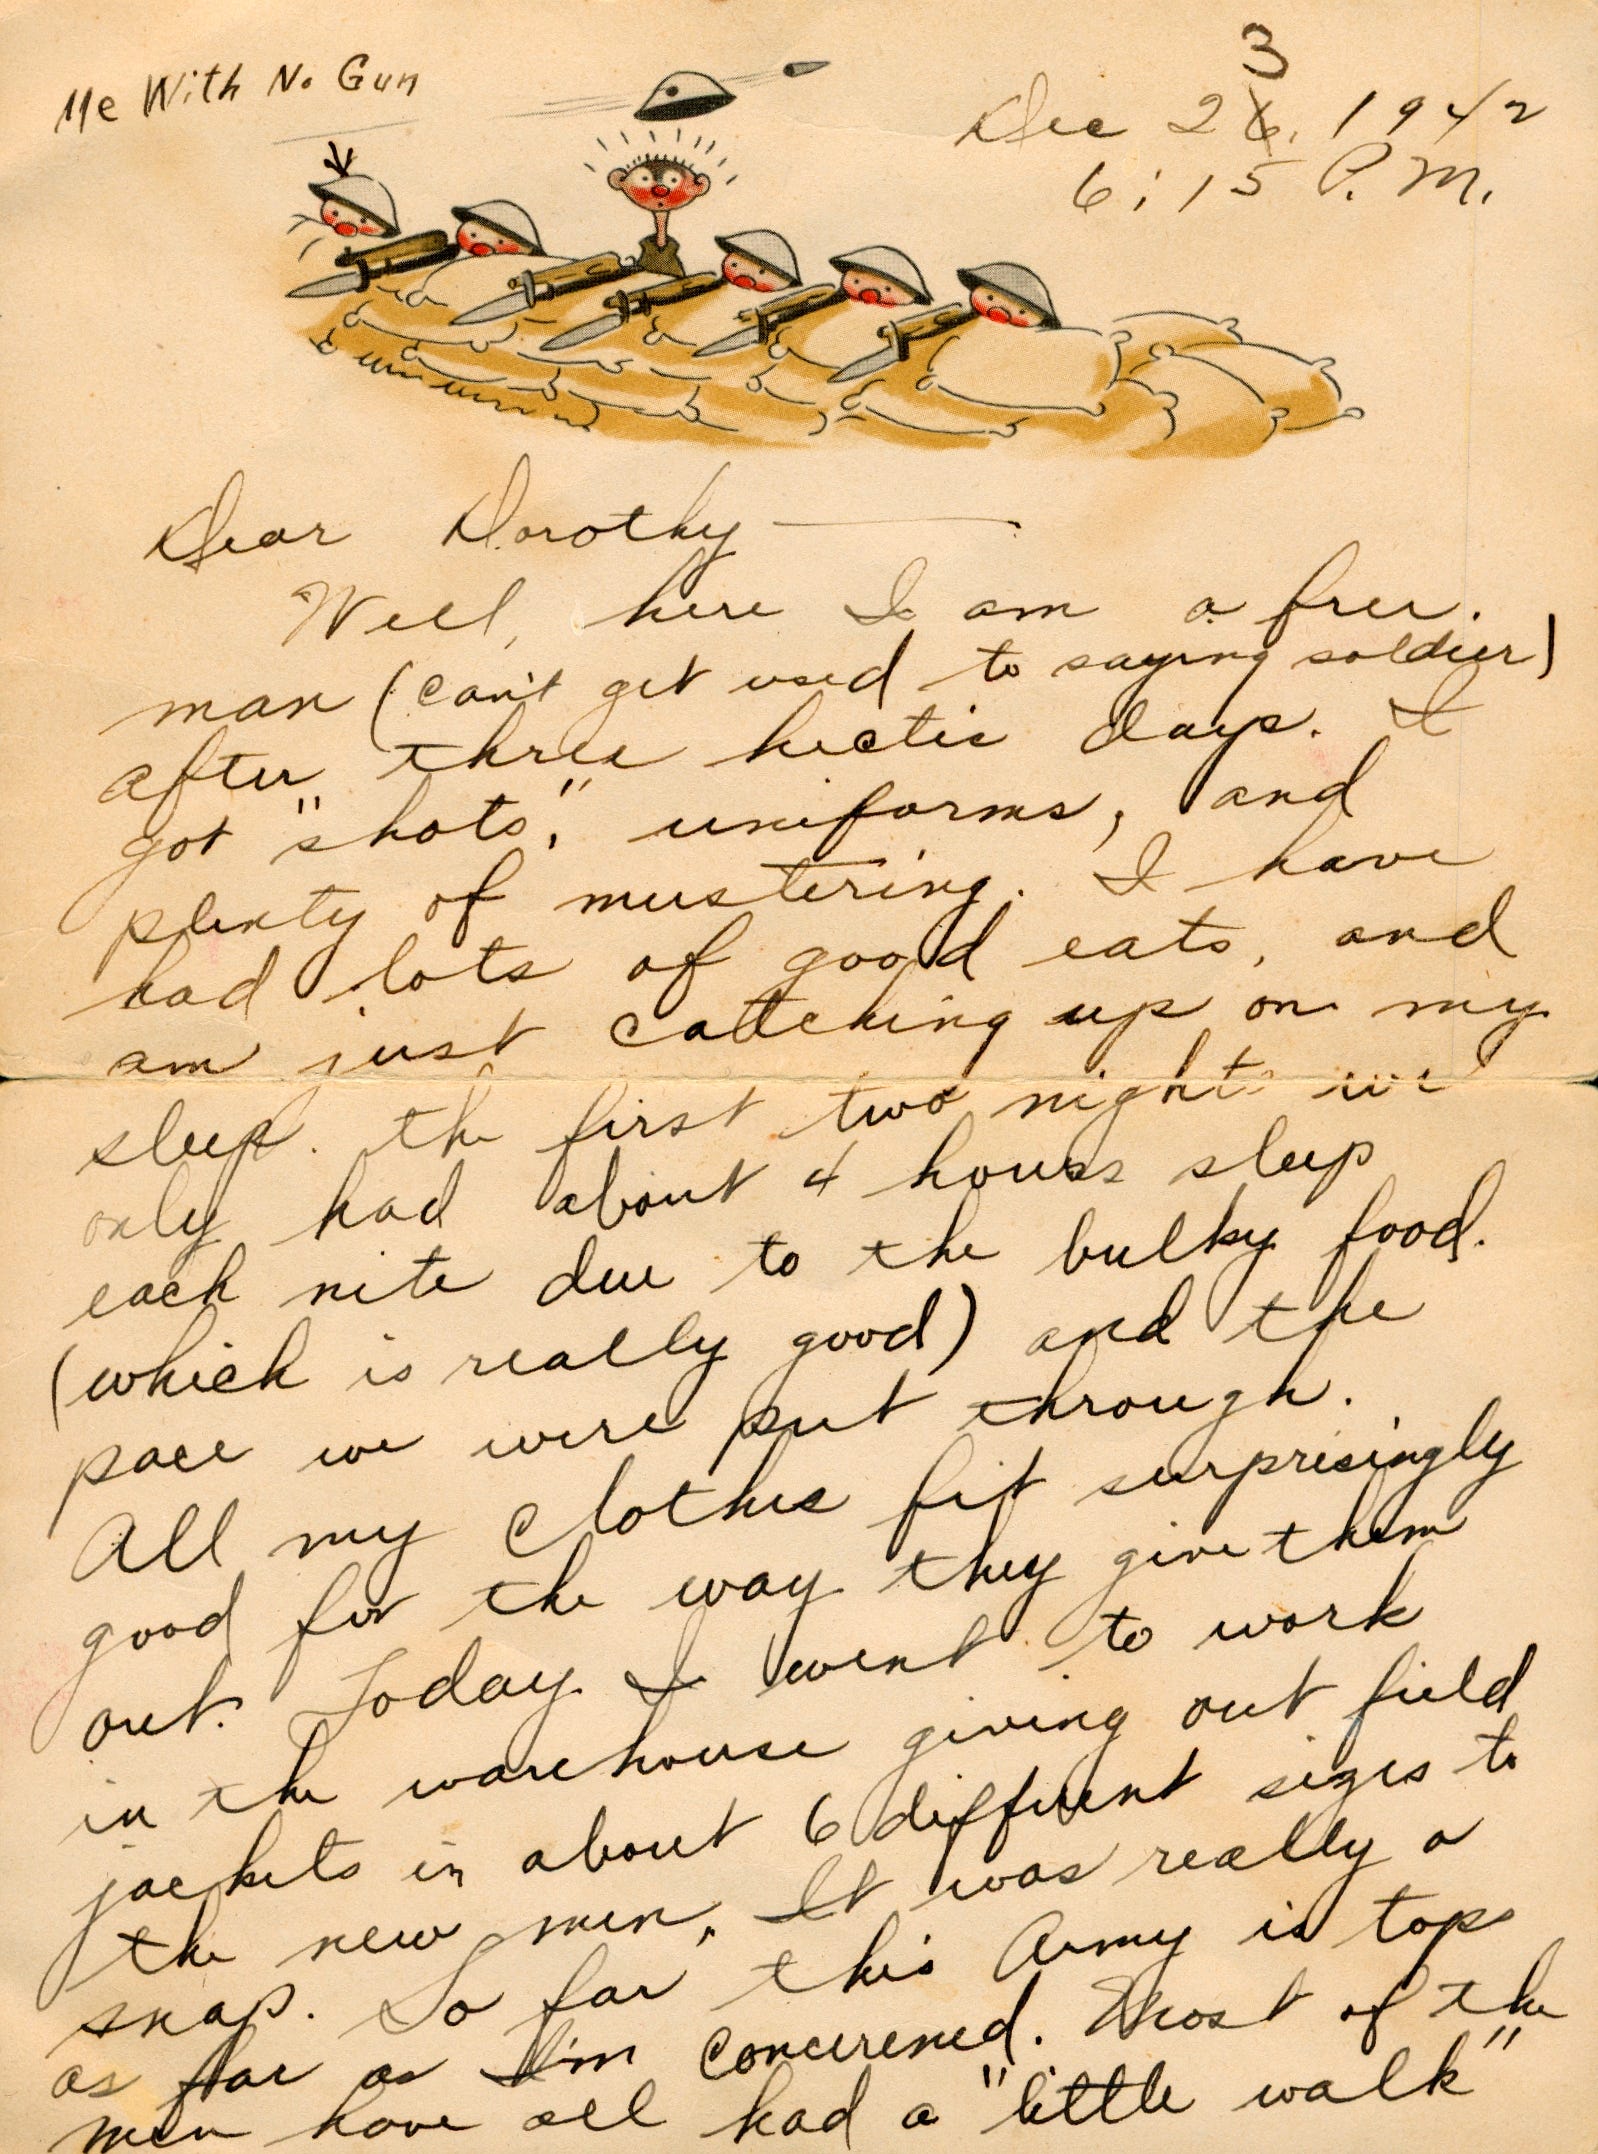 Me With No Gun
3
Dec 26, 1942
6:15 P.M.
Dear Dorothy —
Well, here I am a free
man (can't get used to saying soldier)
after three hectic days. I
got "shots," uniforms, and
plenty of mustering. I have
had lots of good eats, and
am just catching up on my
sleep. the first two nights we
only had about 4 hours sleep
each nite due to the bulky food.
(which is really good) and the
pace we were put through.
All my clothes fit surprisingly
good for the way they give them
out. Today I went to work
in the warehouse giving out field
jackets in about 6 different sizes to
the new men. It was really a
snap. So far this Army is tops
as far as I'm concerened. Most of the
men have all had a "little walk"